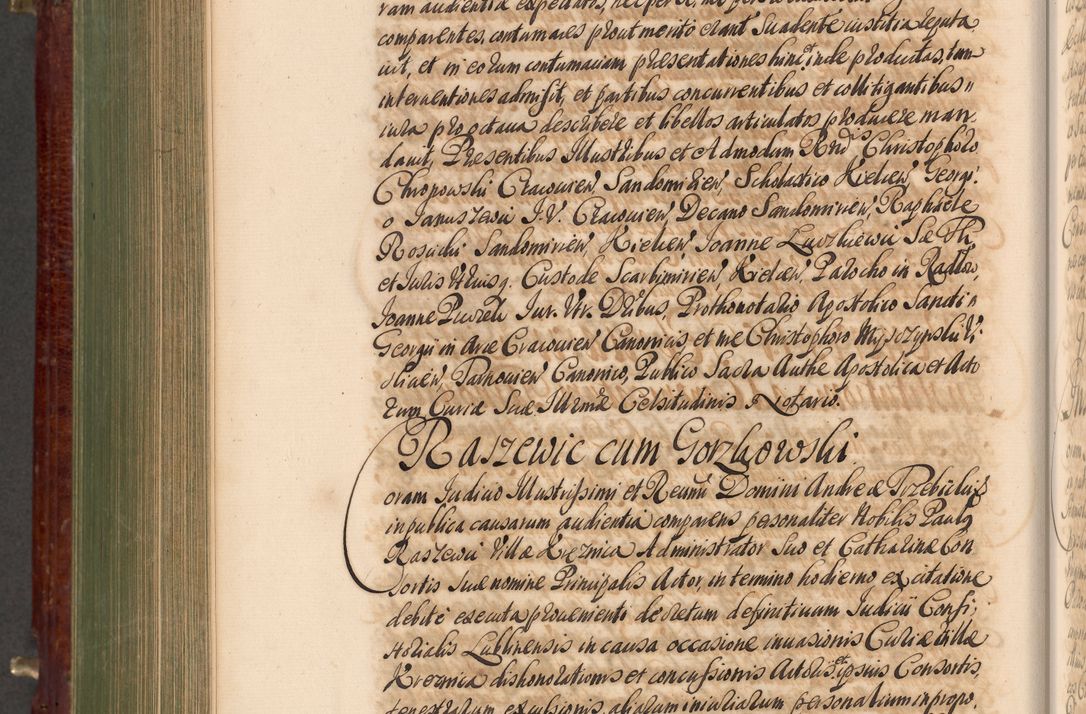 ram audientiæ expectatos, nec per se, nec per
comparentes, contumaces prout merito erant Suadente iustitia reputa
uit, et in eorum contumaciam præsentationes hinc et inde productas, tum
interuentiones admisit, et partibus concurrentibus et collitigantibus
iura pro octaua describere et libellos articulatos producere man
dauit, Præsentibus Illustribus et Admodum Rndis Christophoro
Chropowski Cracouien, Sandomirien, Scholastico Kielcen, Georgi
o Januszewic I.V. Cracouien, Decano Sandomirien, Raphaele
Rosicki Sandomirien, Kielcen, Joanne Sæ Th,
et Juris Vtriusq. Custode Scarbimirien, Kielcen, Parocho in Radłow,
Joanne Puczek Jur. Vtr. Dribus, Prothonotario Apostolico Sancti
Georgij in Arce Cracouien Canonicis et me Christophoro Vi
sliciæn, Tarnouien Canonico, Publico Sacra Authe Apostolica et Acto
rum Curiæ Suæ Illrmæ Celsitudinis Notario.
Raszewic cum Gorzkowski
Coram Judicio Illustrissimi et Reumi Domini Andreæ Trzebicki
in publica causarum audientia comparens personaliter Nobilis Paulg
Raszewic Villæ Kreznica Administrator Suo et Catharinæ Con
sortis suæ nomine Principalis Actor, in termino hodierno ex citatione
debite executa proueniente decretum definitiuum Judicii Consi,
storialis Lublinensis in causa occasione inuasionis Curiæ villæ
Kreznica dishonorationis et concussionis Actoris et ipsius Consortis,
fenestrarum excussionis, aliarum iniuriarum personalium in propo,